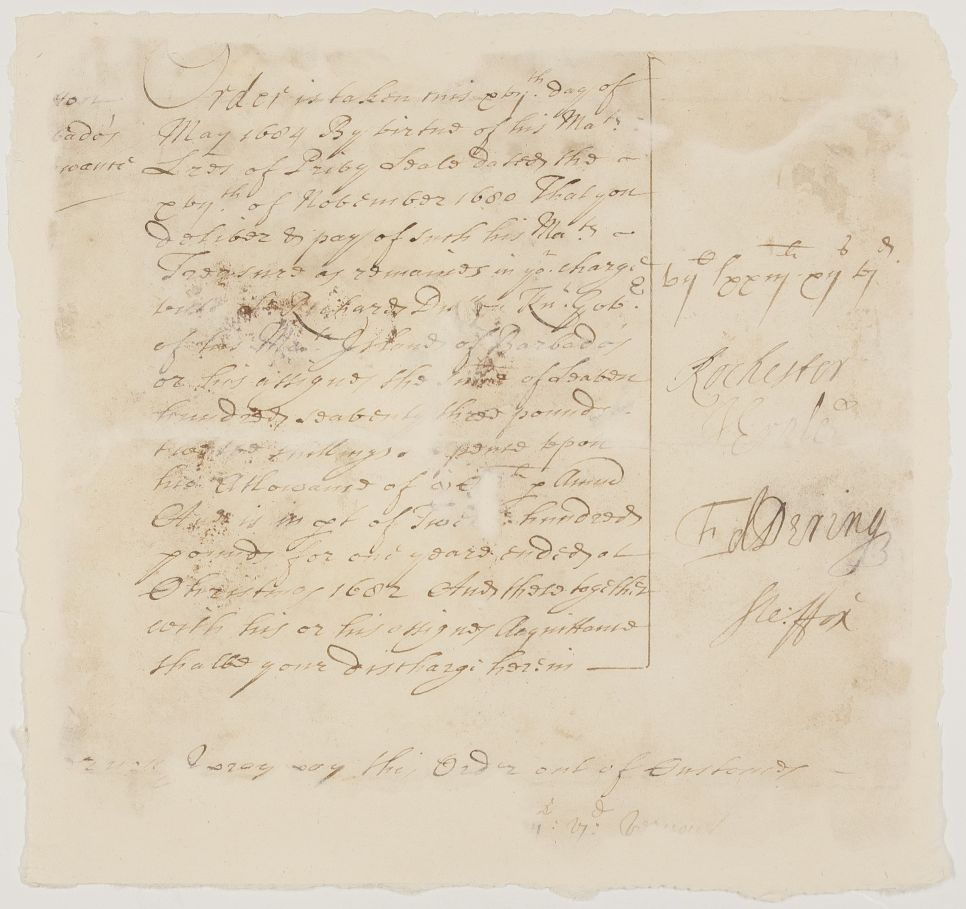 Order is taken this xvijth. day of
May 1684 By virtue of his Mats.
Lres of Privy Seale dated the
xvijth of November 1680 That you
deliver & pay of such his Mats
Treasure as remaines in yor. charge
unto Sr Richard Knt. Govr.
of his Mats Island of Barbados
or his assignes the Sume of Seaven
hundred seaventy three pounds
twelve shillings pence upon
his Allowance of p Annu
And is in pt of hundred
pounds for one yeare ended at
Christmas 1682 And these together
with his or his assignes Acquittance
shalbe your discharge herein
vijC lxxiijli xijs vjd.
Rochester
EdDering
Ste: ffox
I pray pay this Order out of Customes